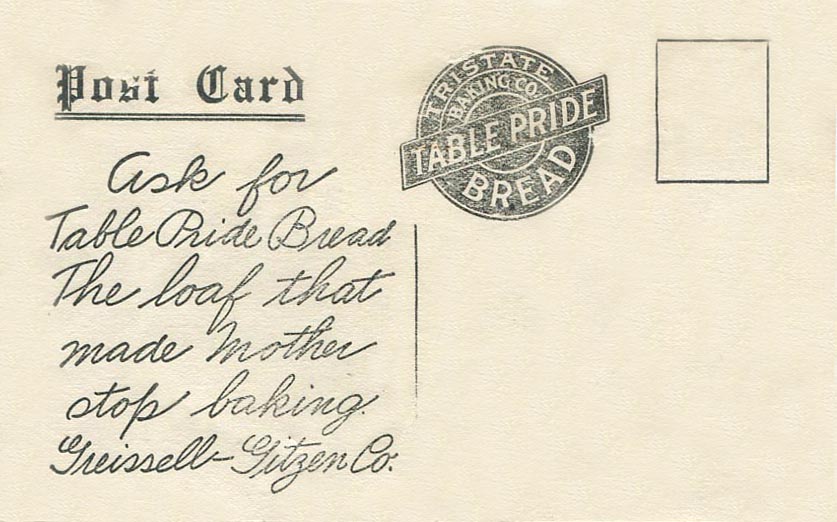 Post Card
TRI-STATE
BAKING CO.
TABLE PRIDE
BREAD
Ask for
Table Pride Bread
The loaf that
made Mother
stop baking.
Greissell-Gitzen Co.